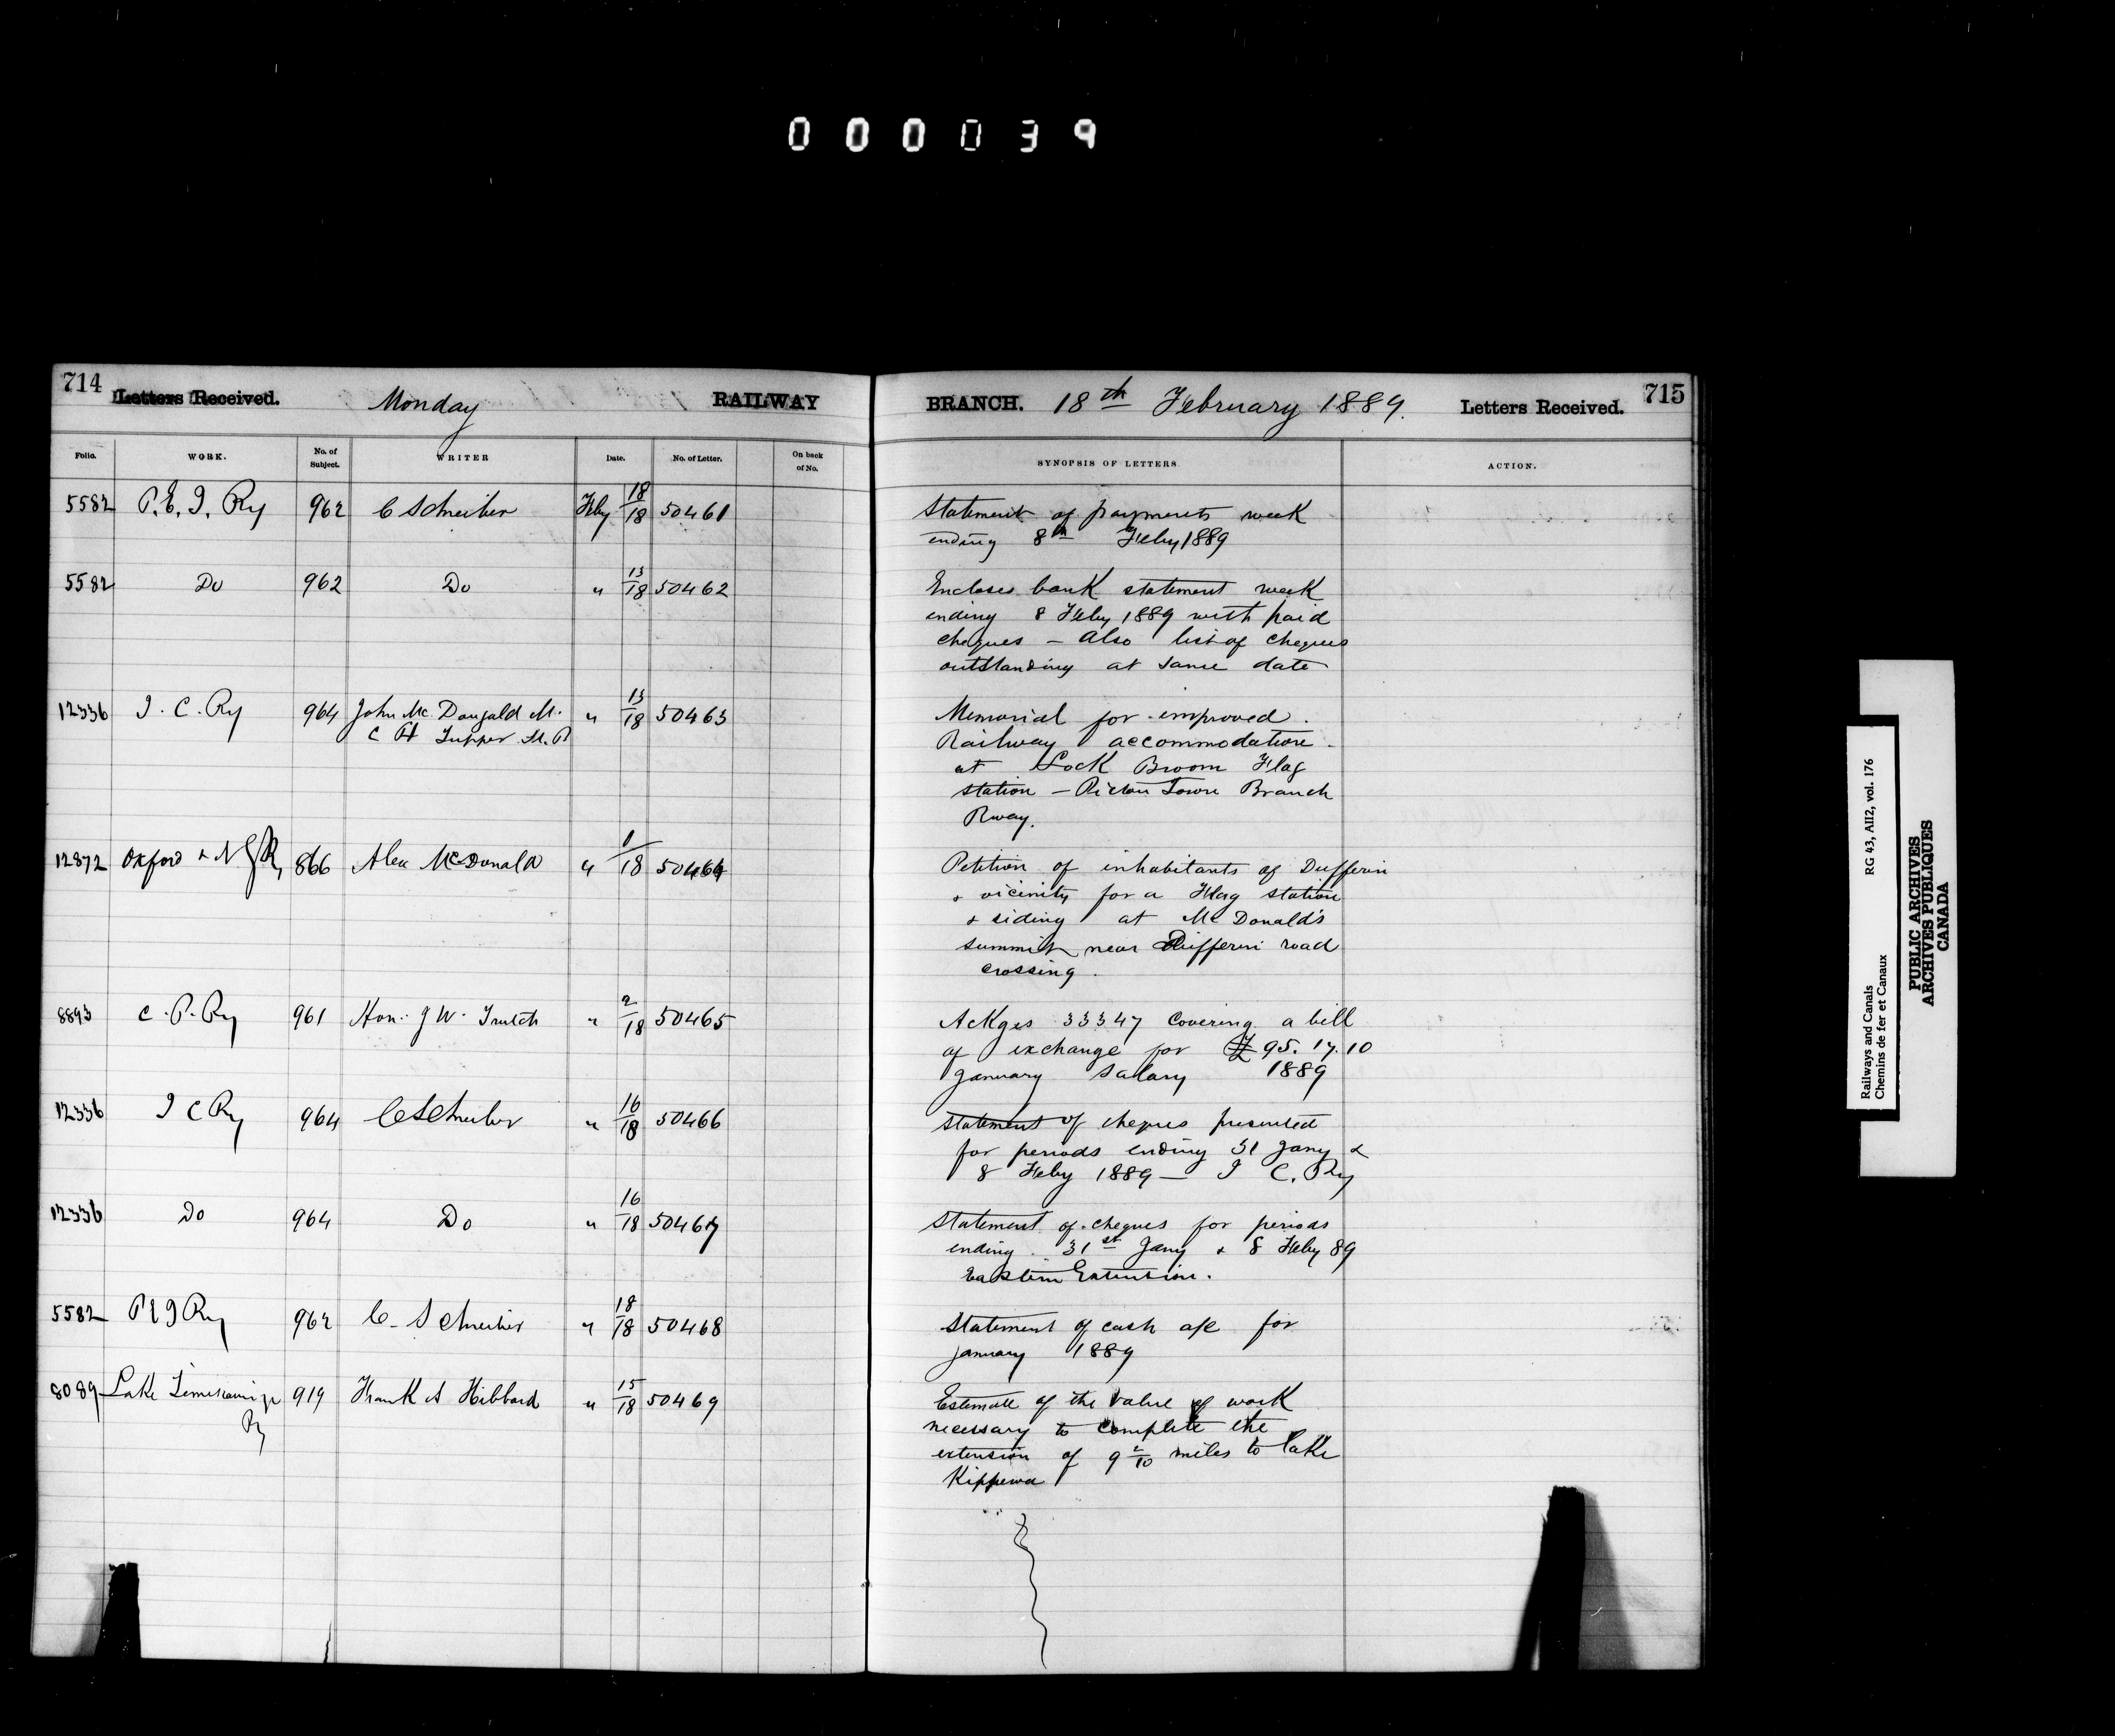 000039
714 Letters Received. Monday RAILWAY
BRANCH. 18th February 1889. Letters Received. 715
Folio. WORK. No. of Subject. WRITER Date. No. of Letter. On back of No.
SYNOPSIS OF LETTERS. ACTION.
5582 P. E. I. Ry 962 C Schreiber Feby 18/18 50461
Statement of payments week
ending 8th Feby 1889
5582 Do 962 Do " 13/18 50462
Encloses bank statement week
ending 8 Feby 1889 with paid
cheques - Also list of cheques
outstanding at same date
12336 I. C. Ry 964 John Mc Dougald M. " 13/18 50463
C H Tupper M. P
Memorial for improved
Railway accommodation
at Lock Broom Flag
station - Pictou Town Branch
Rway.
12872 Oxford & N G Ry 866 Alex McDonald " 1/18 50464
Petition of inhabitants of Dufferin
& vicinity for a Flag station
& siding at McDonald's
summit near Dufferin road
crossing.
8893 C. P. Ry 961 Hon. J W. Trutch " 2/18 50465
Ackges 33347 covering a bill
of exchange for £95.17.10
January Salary 1889
12336 I C Ry 964 C Schreiber " 16/18 50466
Statement of cheques presented
for periods ending 31 Jany &
8 Feby 1889 - I C. Ry
12336 Do 964 Do " 16/18 50467
Statement of cheques for periods
ending 31st Jany & 8 Feby 89
Eastern Extension.
5582 P E I Ry 962 C. Schreiber " 18/18 50468
Statement of cash a/c for
January 1889
8089 Lake Temiscamingue 919 Frank A Hibbard " 15/18 50469
Ry
Estimate of the value of work
necessary to complete the
extension of 9 2/10 miles to lake
Kippewa
Railways and Canals RG 43, AII2, vol. 176
Chemins de fer et Canaux
PUBLIC ARCHIVES
ARCHIVES PUBLIQUES
CANADA